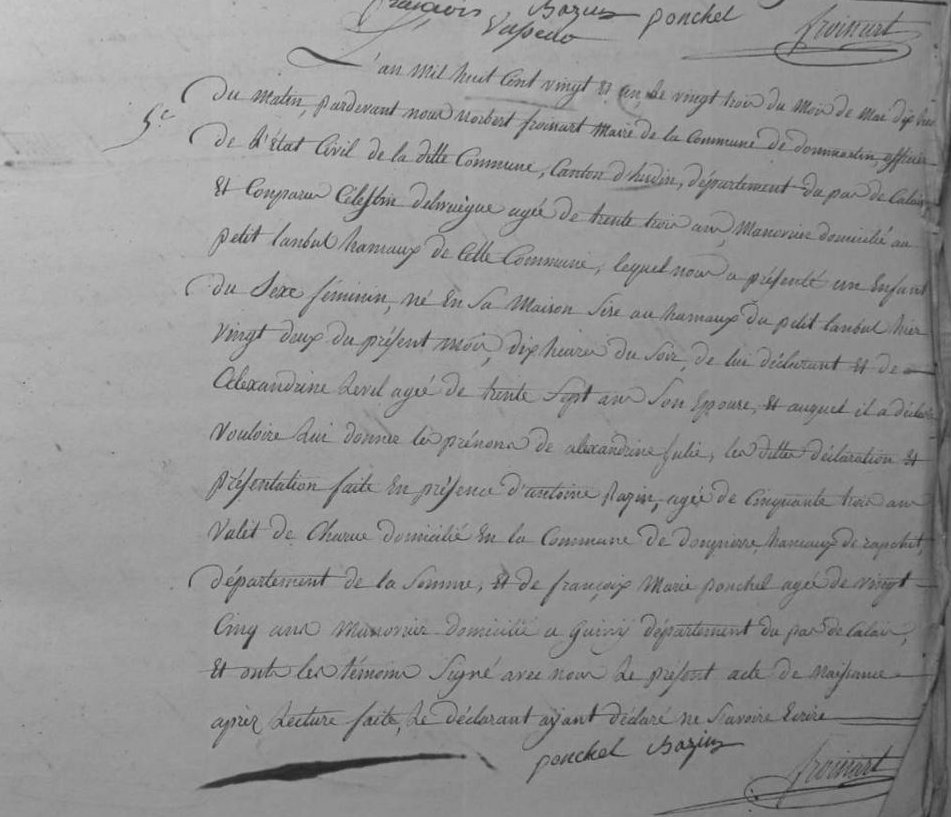 françois Bazin ponchel froinart
Vasseur
L'an mil huit Cent vingt et un, Le vingt trois du Mois de Mai dix heures
5e
du Matin, pardevant nous Norbert froinart Maire de la Commune de dommartin officier
de L'état Civil de la ditte Commune, Canton d'hesdin, département du pas de Calais,
Et Comparu Célestin delwuëgue agée de trente trois ans, Manouvrier domicilié au
petit lanbul hamaux de Cette Commune, lequel nous a présenté un Enfant
du Sexe féminin, né En Sa Maison Sise au hamaux du petit lanbul hier
vingt deux du présent mois, dix heures du Soir, de lui déclarant Et de
Alexandrine Level agée de trente Sept ans Son Epouse, Et auquel il a déclaré
Vouloire Lui donner les prénons de alexandrine Julie, les ditte déclaration Et
présentation faite En présence d'antoine Bazin, agée de Cinquante trois ans
Valet de Charue domicilié En la Commune de dompierre, hamaux de rapchet,
département de la Somme, Et de françoix Marie ponchel agée de vingt
Cinq ans Manouvrier domicilié a Guivy département du pas de Calais,
Et ont les témoins Signé avec nous Le présent acte de Naissance
après Lecture faite, Le déclarant ayant déclaré ne Savoire Ecrire
ponchel Bazin
froinart